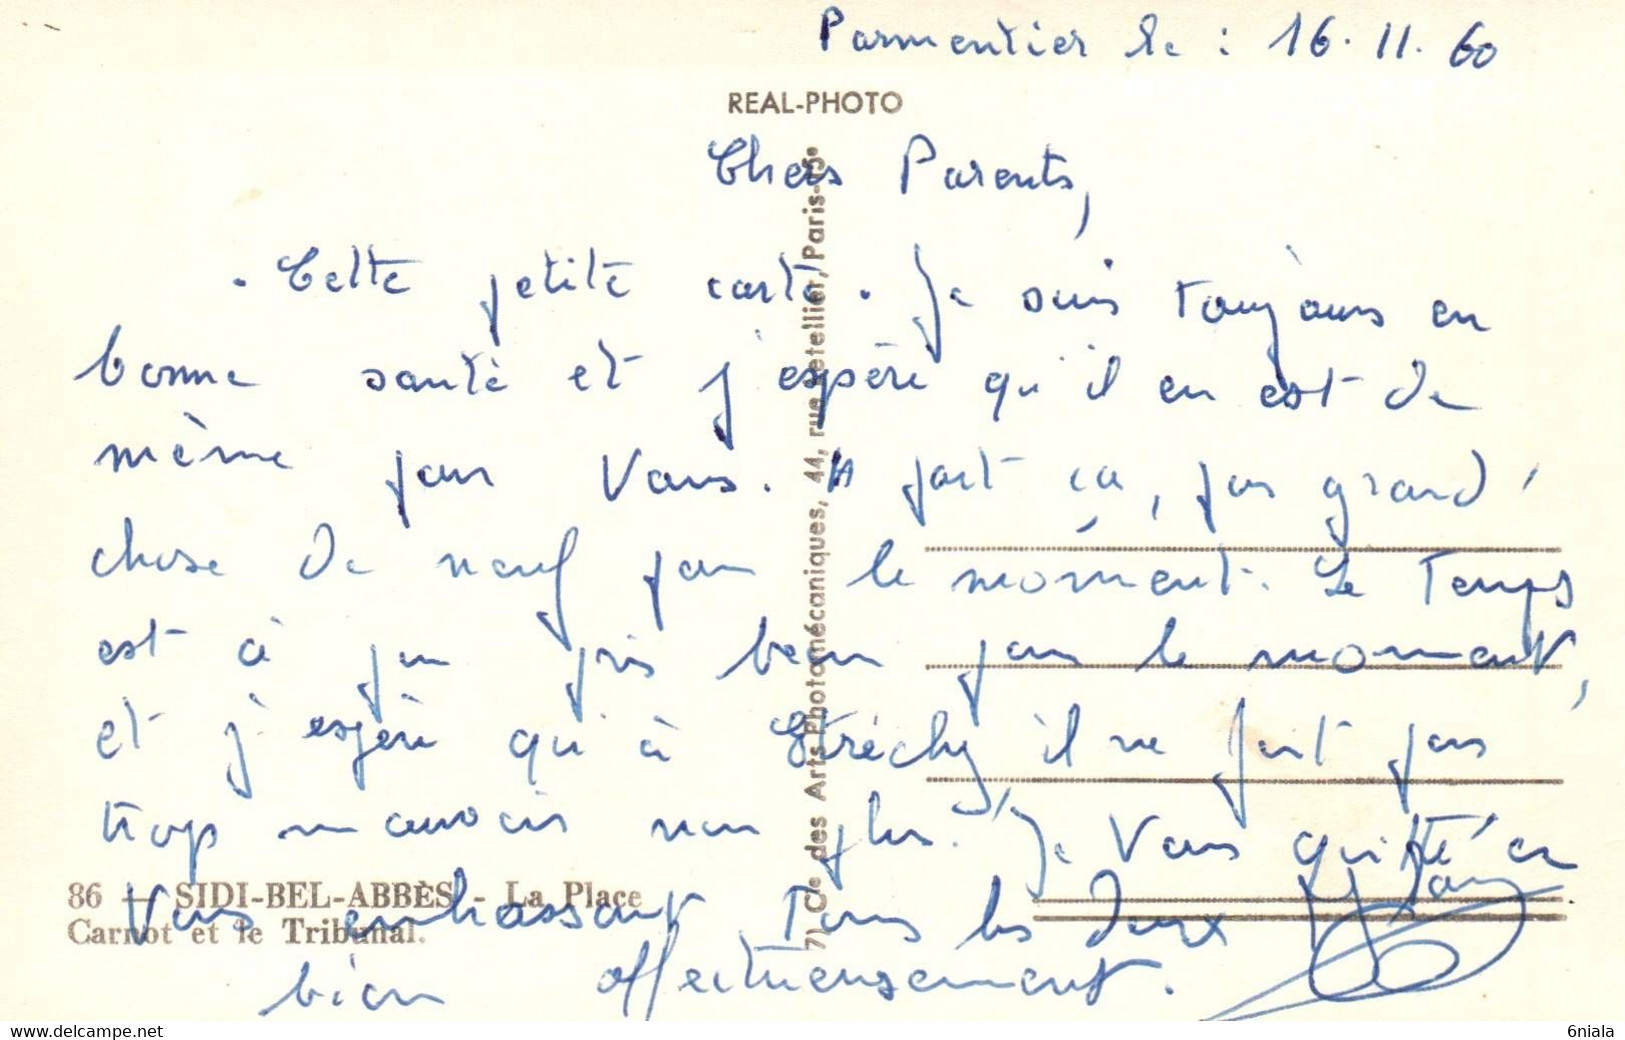 Parmentier le : 16.11.60
REAL-PHOTO
Chers Parents,
Cette petite carte. Je suis toujours en
bonne santé et j'espère qu'il en est de
même pour Vous. A part ça, pas grand
chose de neuf pour le moment. Le temps
est à peu près beau pour le moment,
et j'espère qu'à Etréchy il ne fait pas
trop mauvais non plus. Je Vous quitte en
Vous embrassant tous les deux
bien affectueusement.
86 - SIDI-BEL-ABBÈS - La Place
Carnot et le Tribunal.
Cie des Arts Photomécaniques, 44, rue Letellier, Paris-15e
delcampe.net
6niala